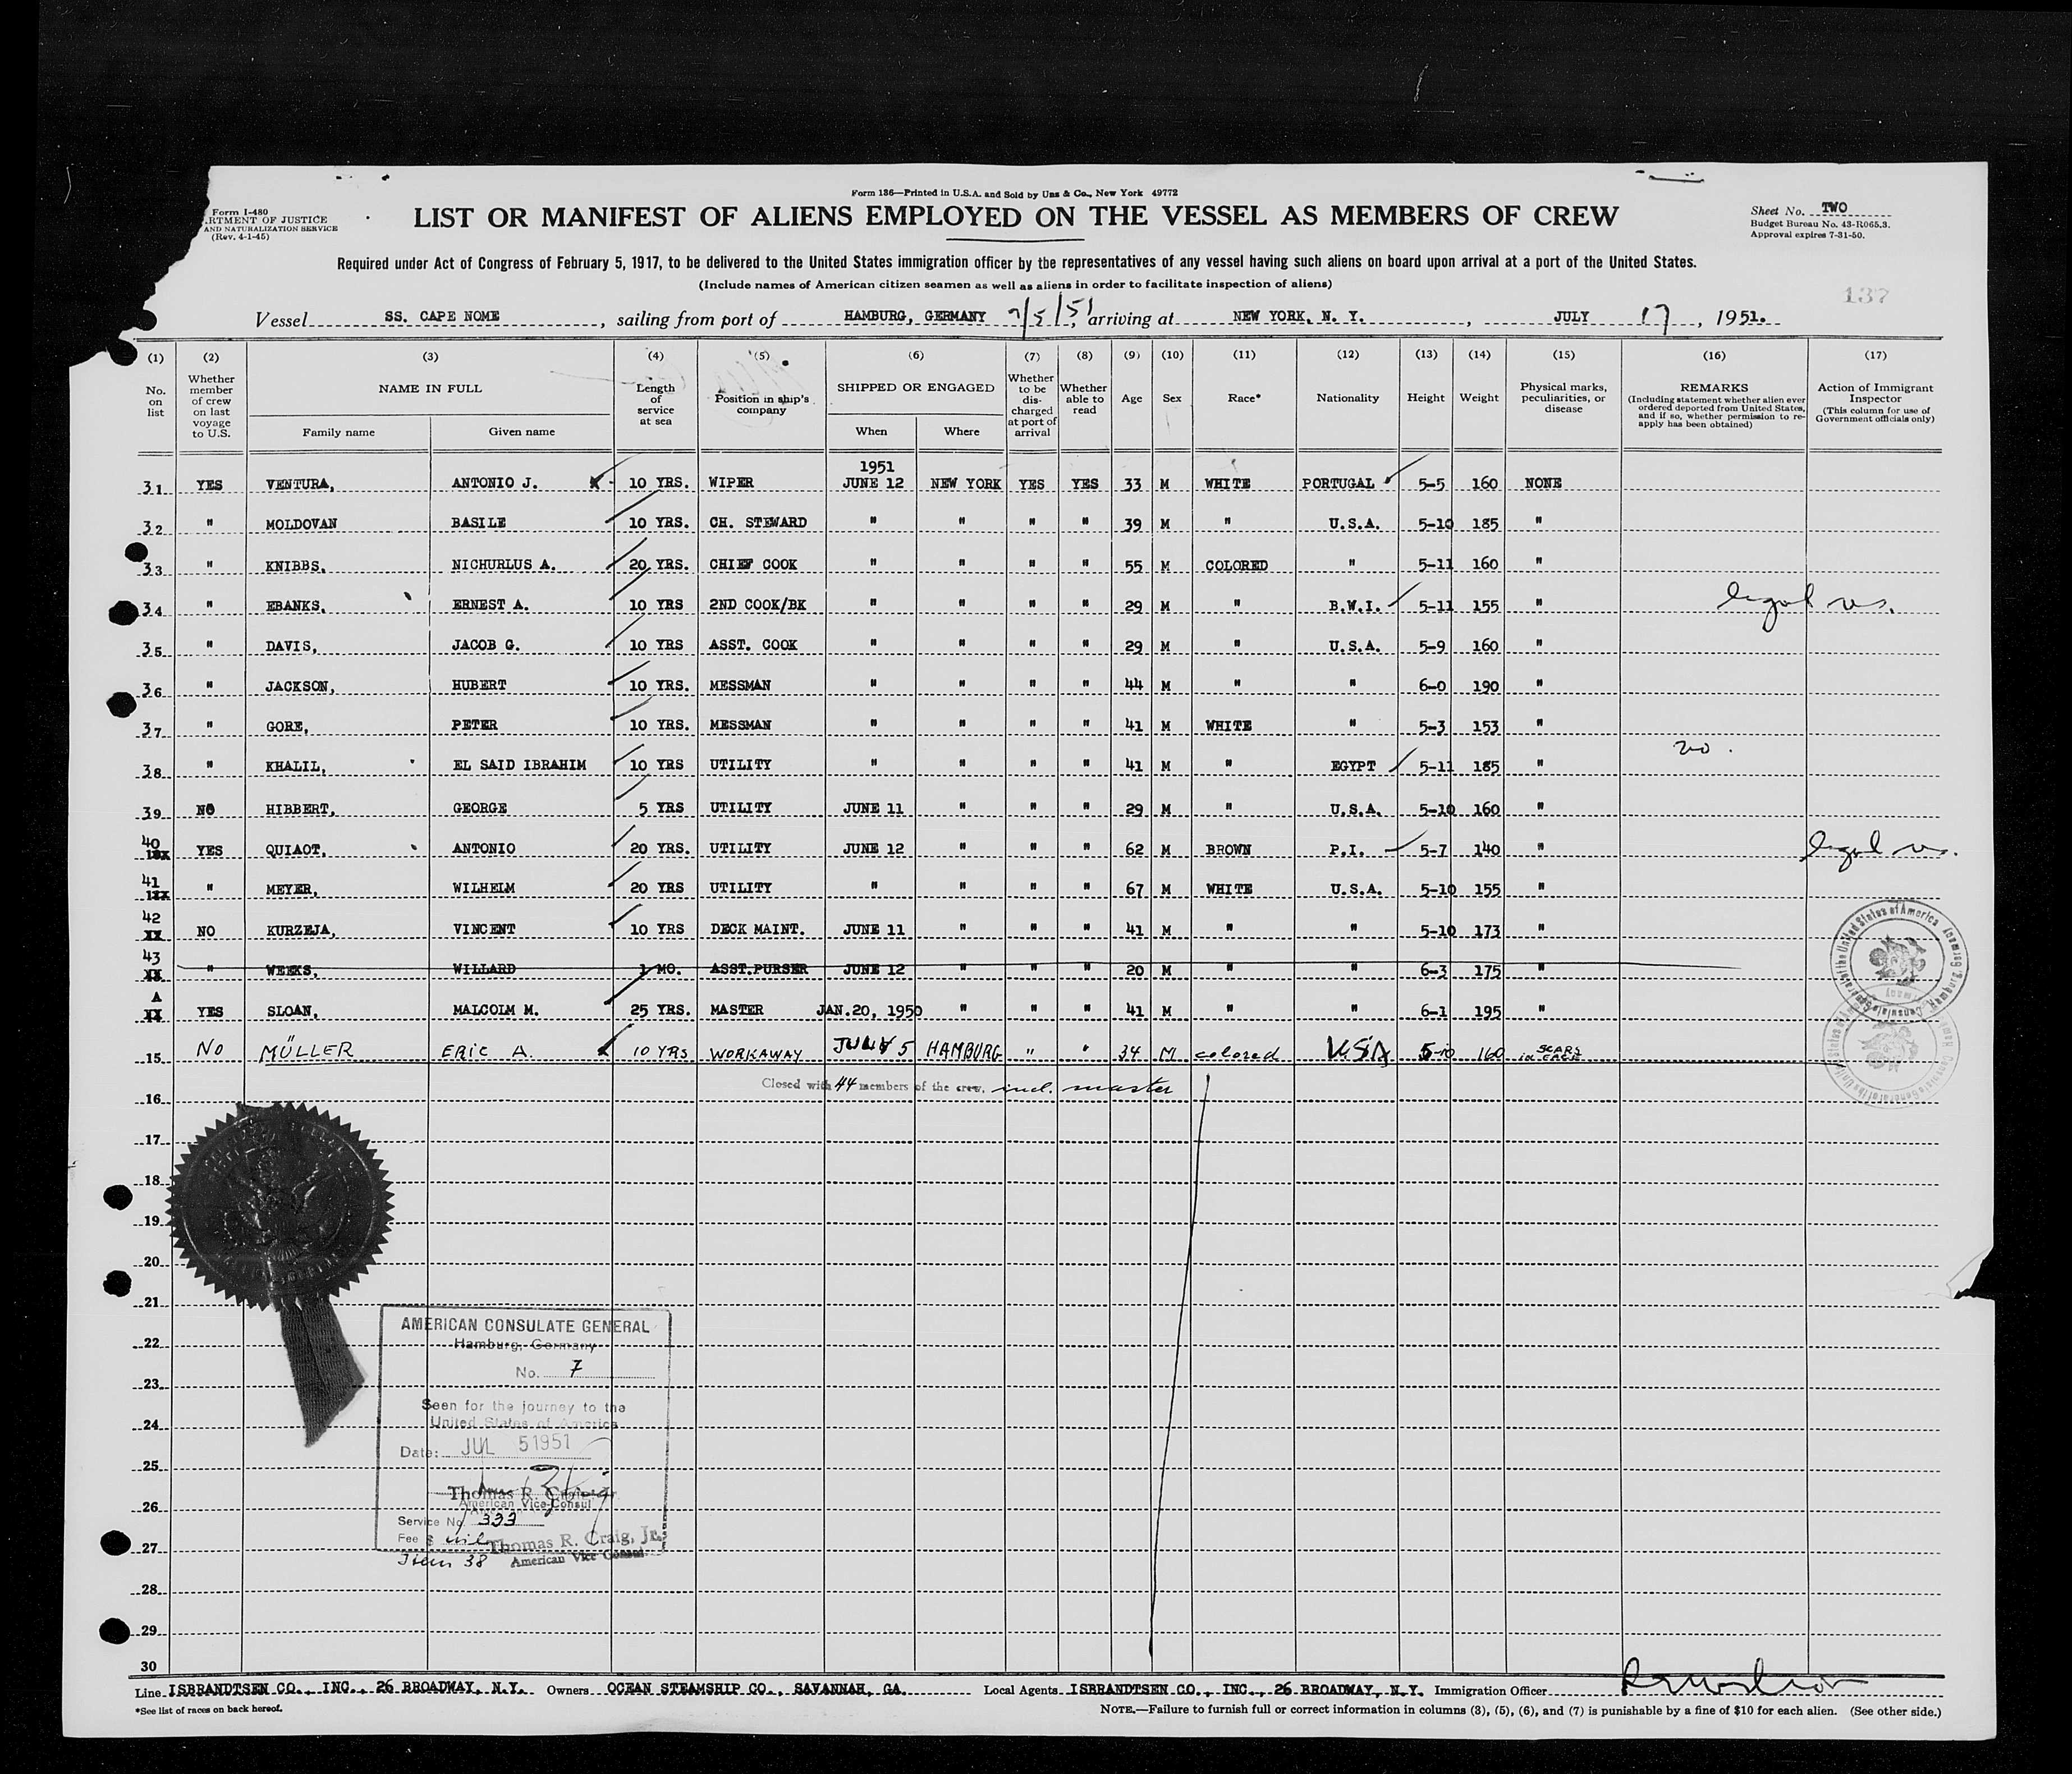 Form 136—Printed in U.S.A. and Sold by Unz & Co., New York 49772
Form I-480
RTMENT OF JUSTICE
AND NATURALIZATION SERVICE
(Rev. 4-1-45)
LIST OR MANIFEST OF ALIENS EMPLOYED ON THE VESSEL AS MEMBERS OF CREW
Sheet No. TWO
Budget Bureau No. 43-R065.3.
Approval expires 7-31-50.
Required under Act of Congress of February 5, 1917, to be delivered to the United States immigration officer by the representatives of any vessel having such aliens on board upon arrival at a port of the United States.
(Include names of American citizen seamen as well as aliens in order to facilitate inspection of aliens)
137
Vessel SS. CAPE NOME, sailing from port of HAMBURG, GERMANY 7/5/51, arriving at NEW YORK, N. Y., JULY 17, 1951.
(1) (2) (3) (4) (5) (6) (7) (8) (9) (10) (11) (12) (13) (14) (15) (16) (17)
No. on list
Whether member of crew on last voyage to U.S.
NAME IN FULL
Family name
Given name
Length of service at sea
Position in ship's company
SHIPPED OR ENGAGED
When
Where
Whether to be discharged at port of arrival
Whether able to read
Age
Sex
Race*
Nationality
Height
Weight
Physical marks, peculiarities, or disease
REMARKS
(Including statement whether alien ever ordered deported from United States, and if so, whether permission to re-apply has been obtained)
Action of Immigrant Inspector
(This column for use of Government officials only)
1951
31 YES VENTURA, ANTONIO J. 10 YRS. WIPER JUNE 12 NEW YORK YES YES 33 M WHITE PORTUGAL 5-5 160 NONE
32 " MOLDOVAN BASILE 10 YRS. CH. STEWARD " " " " 39 M " U.S.A. 5-10 185 "
33 " KNIBBS, NICHURLUS A. 20 YRS. CHIEF COOK " " " " 55 M COLORED " 5-11 160 "
34 " EBANKS, ERNEST A. 10 YRS 2ND COOK/BK " " " " 29 M " B.W.I. 5-11 155 " legal res.
35 " DAVIS, JACOB G. 10 YRS ASST. COOK " " " " 29 M " U.S.A. 5-9 160 "
36 " JACKSON, HUBERT 10 YRS. MESSMAN " " " " 44 M " " 6-0 190 "
37 " GORE, PETER 10 YRS. MESSMAN " " " " 41 M WHITE " 5-3 153 "
38 " KHALIL, EL SAID IBRAHIM 10 YRS UTILITY " " " " 41 M " EGYPT 5-11 185 " no.
39 NO HIBBERT, GEORGE 5 YRS UTILITY JUNE 11 " " " 29 M " U.S.A. 5-10 160 "
40 YES QUIAOT, ANTONIO 20 YRS. UTILITY JUNE 12 " " " 62 M BROWN P.I. 5-7 140 " legal res.
41 " MEYER, WILHELM 20 YRS UTILITY " " " " 67 M WHITE U.S.A. 5-10 155 "
42 NO KURZEJA, VINCENT 10 YRS DECK MAINT. JUNE 11 " " " 41 M " " 5-10 173 "
43 " WEEKS, WILLARD 1 MO. ASST.PURSER JUNE 12 " " " 20 M " " 6-3 175 "
A YES SLOAN, MALCOLM M. 25 YRS. MASTER JAN.20, 1950 " " " 41 M " " 6-1 195 "
15 NO MÜLLER ERIC A. 10 YRS WORKAWAY JULY 5 HAMBURG " " 34 M colored USA 5-10 160 SCARS IN FACE
Closed with 44 members of the crew, incl. master
16
17
18
19
20
21
22
23
24
25
26
27
28
29
30
AMERICAN CONSULATE GENERAL
Hamburg, Germany
No. 7
Seen for the journey to the
United States of America
Date: JUL 5 1951
Thomas R. Craig, Jr.
American Vice Consul
Service No. 333
Fee $ nil
Thomas R. Craig, Jr.
American Vice Consul
Item 38
Line ISBRANDTSEN CO., INC., 26 BROADWAY, N.Y. Owners OCEAN STEAMSHIP CO., SAVANNAH, GA. Local Agents ISBRANDTSEN CO., INC., 26 BROADWAY, N.Y. Immigration Officer
*See list of races on back hereof.
NOTE.—Failure to furnish full or correct information in columns (3), (5), (6), and (7) is punishable by a fine of $10 for each alien. (See other side.)